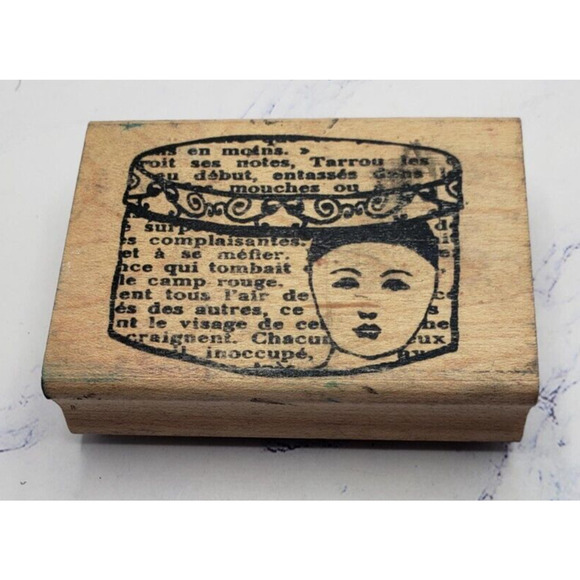 en moins. »
roit ses notes, Tarrou les
au début, entassés dans
mouches ou
surp
s complaisantes.
et à se méfier.
nce qui tombait
le camp rouge.
ent tous l'air de
és des autres, ce
nt le visage de ce
craignent. Chacu eux
inoccupé,